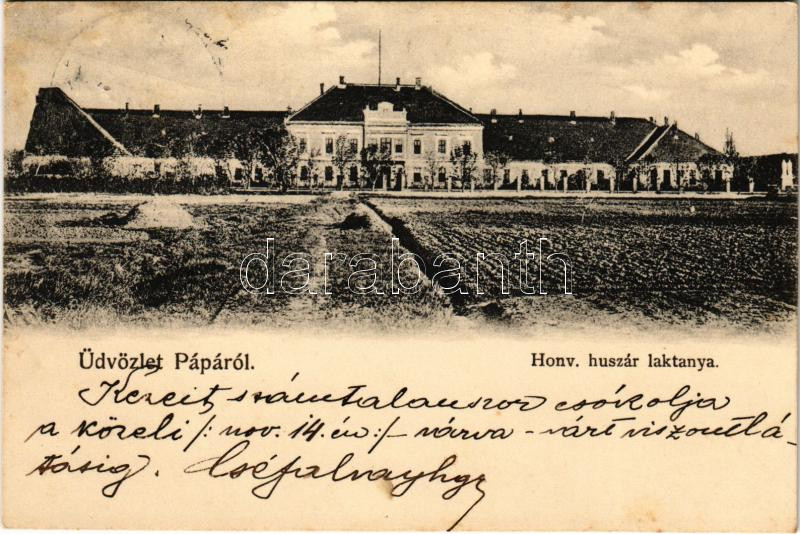 darabanth
Üdvözlet Pápáról.
Honv. huszár laktanya.
Kezeit számtalanszor csókolja
a közeli /: nov. 14. én :/ - várva - várt viszontlá-
tásig.